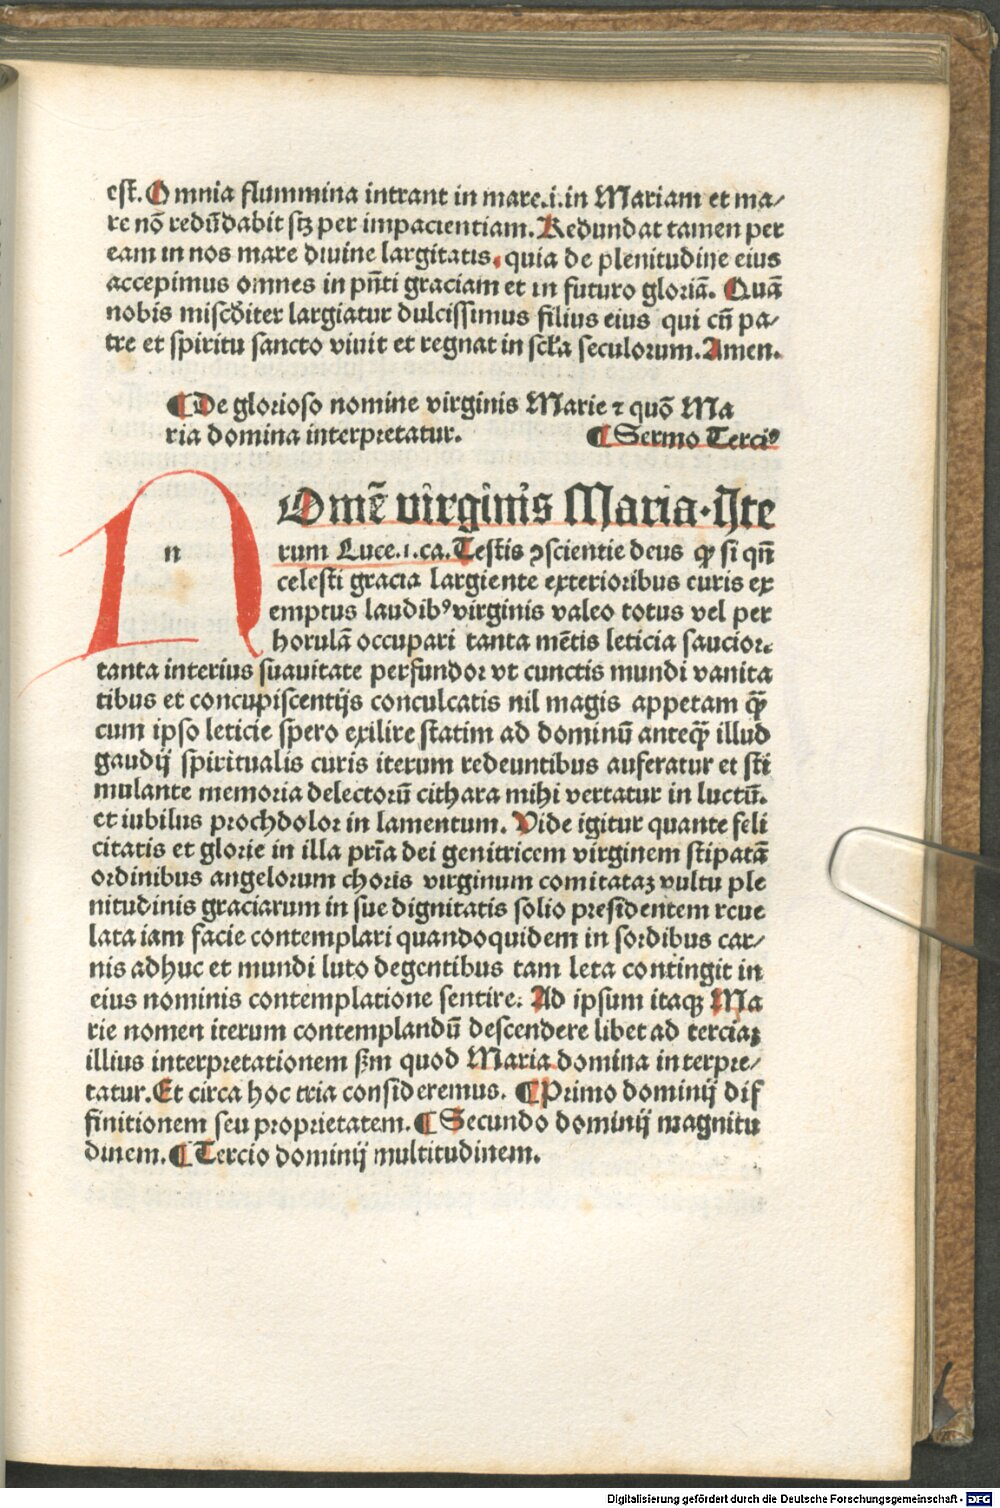 est. Omnia flummina intrant in mare.i.in Mariam et ma⸗
re nō redūdabit sꝫ per impacientiam. Redundat tamen per
eam in nos mare diuine largitatis, quia de plenitudine eius
accepimus omnes in pn̄ti graciam et in futuro gloriā. Quā
nobis misc̄diter largiatur dulcissimus filius eius qui cū pa⸗
tre et spiritu sancto viuit et regnat in sc̄la seculorum. Amen.
¶ De glorioso nomine virginis Marie ⁊ quō Ma
ria domina interpretatur. ¶ Sermo Terciꝰ
n
Omē virginis Maria. Ite
rum Luce.i.ca. Testis ꝯscientie deus ꝙ si qn̄
celesti gracia largiente exterioribus curis ex
emptus laudibꝰ virginis valeo totus vel per
horulā occupari tanta mētis leticia saucior.
tanta interius suauitate perfundor vt cunctis mundi vanita
tibus et concupiscentijs conculcatis nil magis appetam qͣꝫ
cum ipso leticie spero exilire statim ad dominū anteqͣꝫ illud
gaudij spiritualis curis iterum redeuntibus auferatur et sti
mulante memoria delectorū cithara mihi vertatur in luctū.
et iubilus prochdolor in lamentum. Vide igitur quante feli
citatis et glorie in illa pr̄ia dei genitricem virginem stipatā
ordinibus angelorum choris virginum comitataꝫ vultu ple
nitudinis graciarum in sue dignitatis solio presidentem reue
lata iam facie contemplari quandoquidem in sordibus car⸗
nis adhuc et mundi luto degentibus tam leta contingit in
eius nominis contemplatione sentire. Ad ipsum itaqꝫ Ma
rie nomen iterum contemplandū descendere libet ad terciaꝫ
illius interpretationem ẜm quod Maria domina interpre⸗
tatur. Et circa hoc tria consideremus. ¶ Primo dominij dif
finitionem seu proprietatem. ¶ Secundo dominij magnitu
dinem. ¶ Tercio dominij multitudinem.
Digitalisierung gefördert durch die Deutsche Forschungsgemeinschaft - DFG